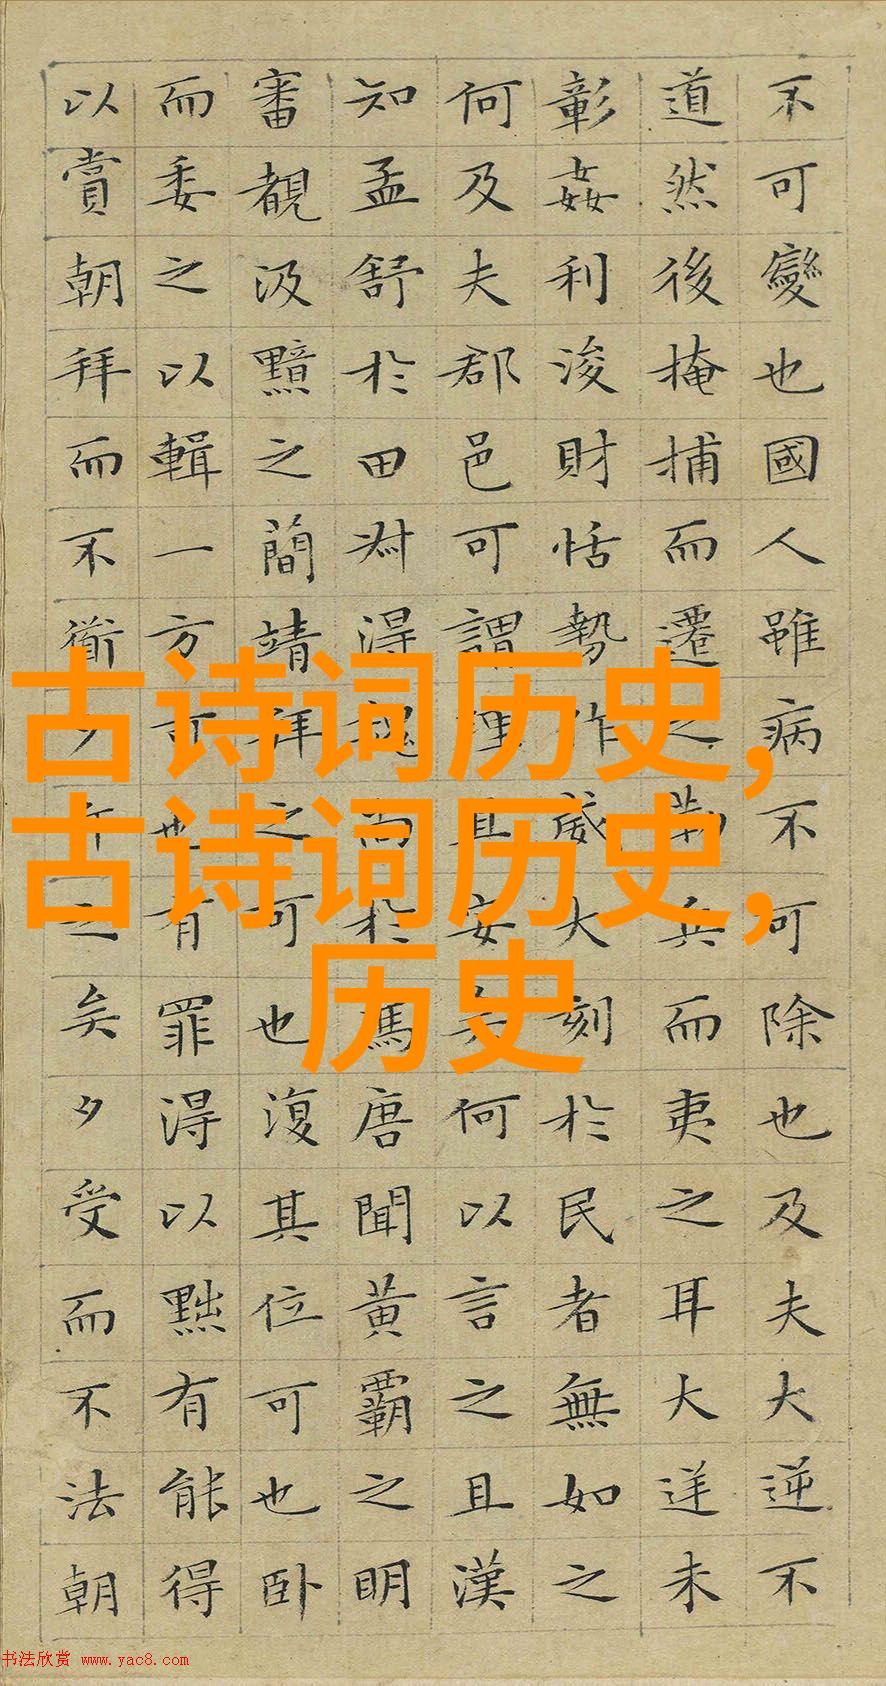 不可變也國人雖病不可除也及夫大逆不
道然後掩捕而遷之勒兵而夷之耳大逆未
彰姦利浚財恬勢作威大刻於民者無如之
何及夫郡邑可謂理且安矣何以言之且漢
知孟舒於田叔得魏尚於馮唐聞黃霸之明
審覩汲黯之簡靖拜之可也復其位可也臥
而委之以輯一方可也有罪得以黜有能得
以賞朝拜而不道夕斥之矣夕受而不法朝
古诗词历史,
古诗词历史,
历史
书法欣赏 www.yac8.com